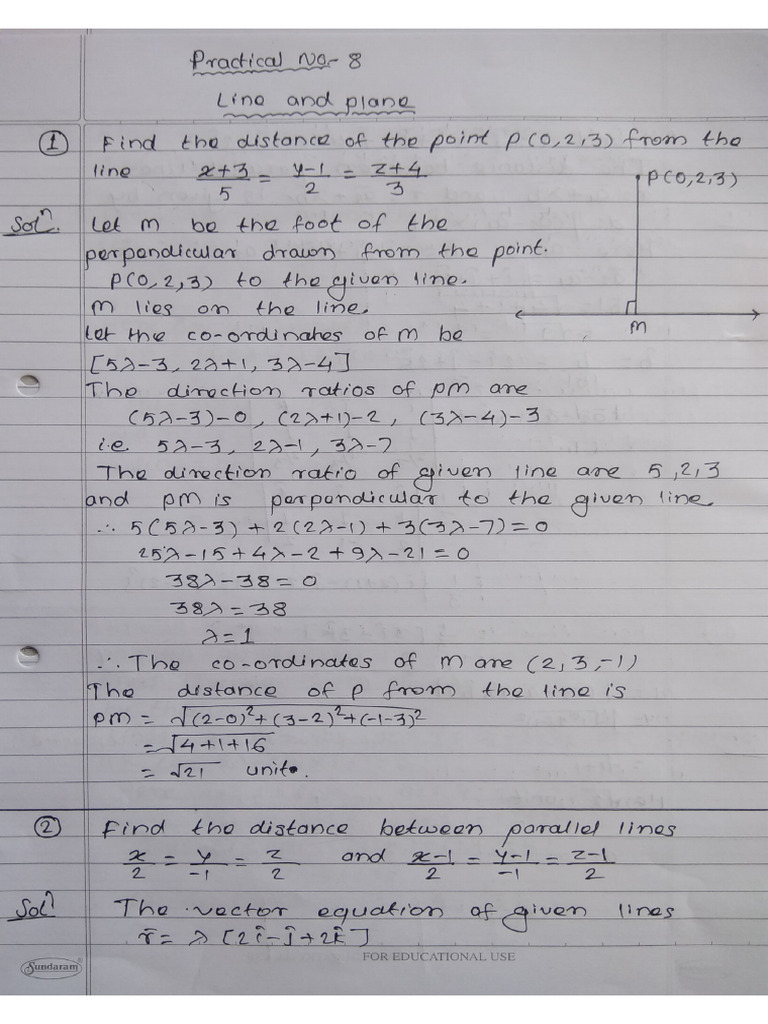 Practical No- 8
Line and plane
① Find the distance of the point P(0,2,3) from the
line (x+3)/5 = (y-1)/2 = (z+4)/3
P(0,2,3)
Solⁿ. Let M be the foot of the
perpendicular drawn from the point.
P(0,2,3) to the given line.
M lies on the line.
Let the co-ordinates of M be
M
[5λ-3, 2λ+1, 3λ-4]
The direction ratios of PM are
(5λ-3)-0, (2λ+1)-2, (3λ-4)-3
i.e 5λ-3, 2λ-1, 3λ-7
The direction ratio of given line are 5,2,3
and PM is perpendicular to the given line.
∴ 5(5λ-3) + 2(2λ-1) + 3(3λ-7) = 0
25λ-15+4λ-2+9λ-21 = 0
38λ-38 = 0
38λ = 38
λ = 1
∴ The co-ordinates of M are (2,3,-1)
The distance of P from the line is
PM = √(2-0)²+(3-2)²+(-1-3)²
= √4+1+16
= √21 unit.
② Find the distance between parallel lines
x/2 = y/-1 = z/2 and (x-1)/2 = (y-1)/-1 = (z-1)/2
Solⁿ The vector equation of given lines
r̄ = λ [2î-ĵ+2k̂]
FOR EDUCATIONAL USE
Sundaram®